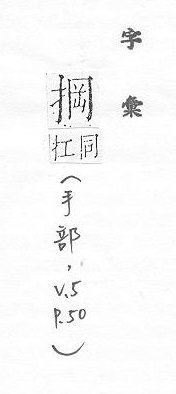 字彙
掆同扛(手部, v.5 p.50)